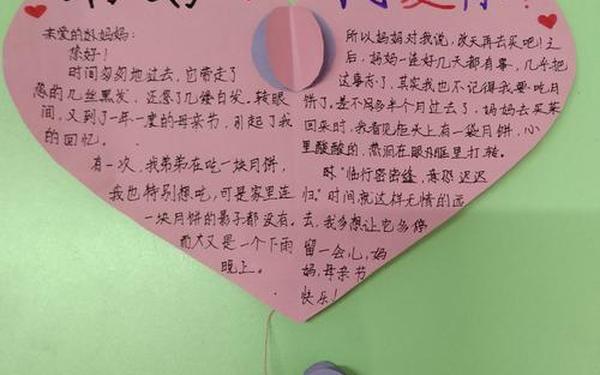 亲爱的妈妈:
您好!
时间匆匆地过去,它带走了
您的几丝黑发,还您了几缕白发。转眼
间,又到了一年一度的母亲节,引起了我
的回忆。
有一次,我弟弟在吃一块月饼,
我也特别想吃,可是家里连
一块月饼的影子都没有。
而又是一个下雨
晚上。
所以妈妈对我说,改天再去买吧!之
后,妈妈一连好几天都有事,几乎把
这事忘了,其实我也不记得我要吃月
饼了。差不多半个月过去了,妈妈去买菜
回来时,我看见柜头上有一袋月饼,心
里酸酸的,热泪在眼眶里打转。
"临行密密缝,意恐迟迟
归。"时间就这样无情的
去,我多想让它多停
留一会儿,妈
妈,母亲节
快乐!